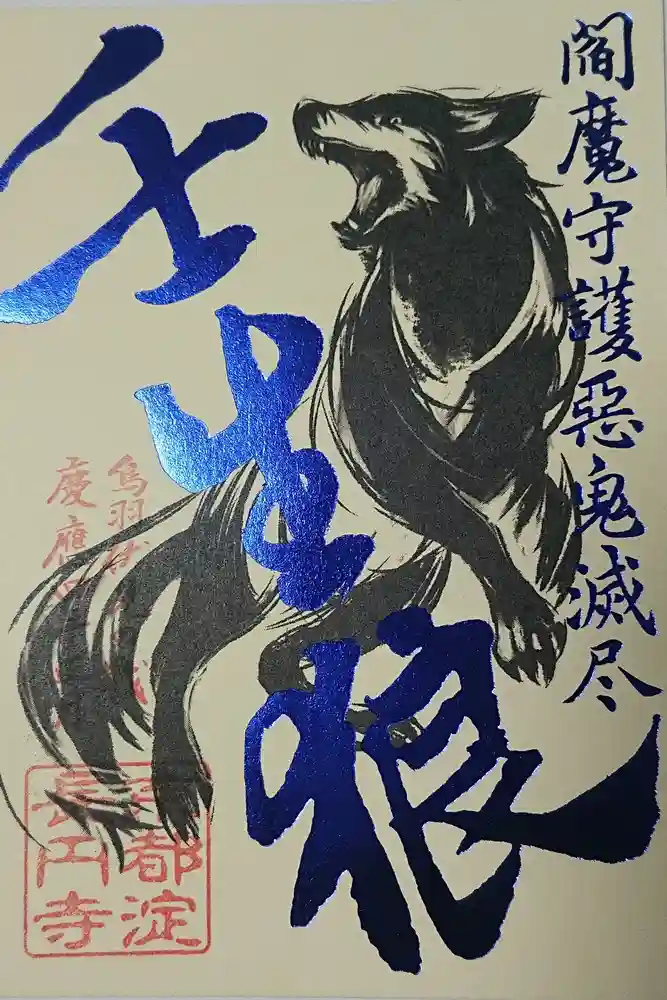 閻魔守護惡鬼滅尽
壬生狼
鳥羽伏
慶應
京都淀
長円寺